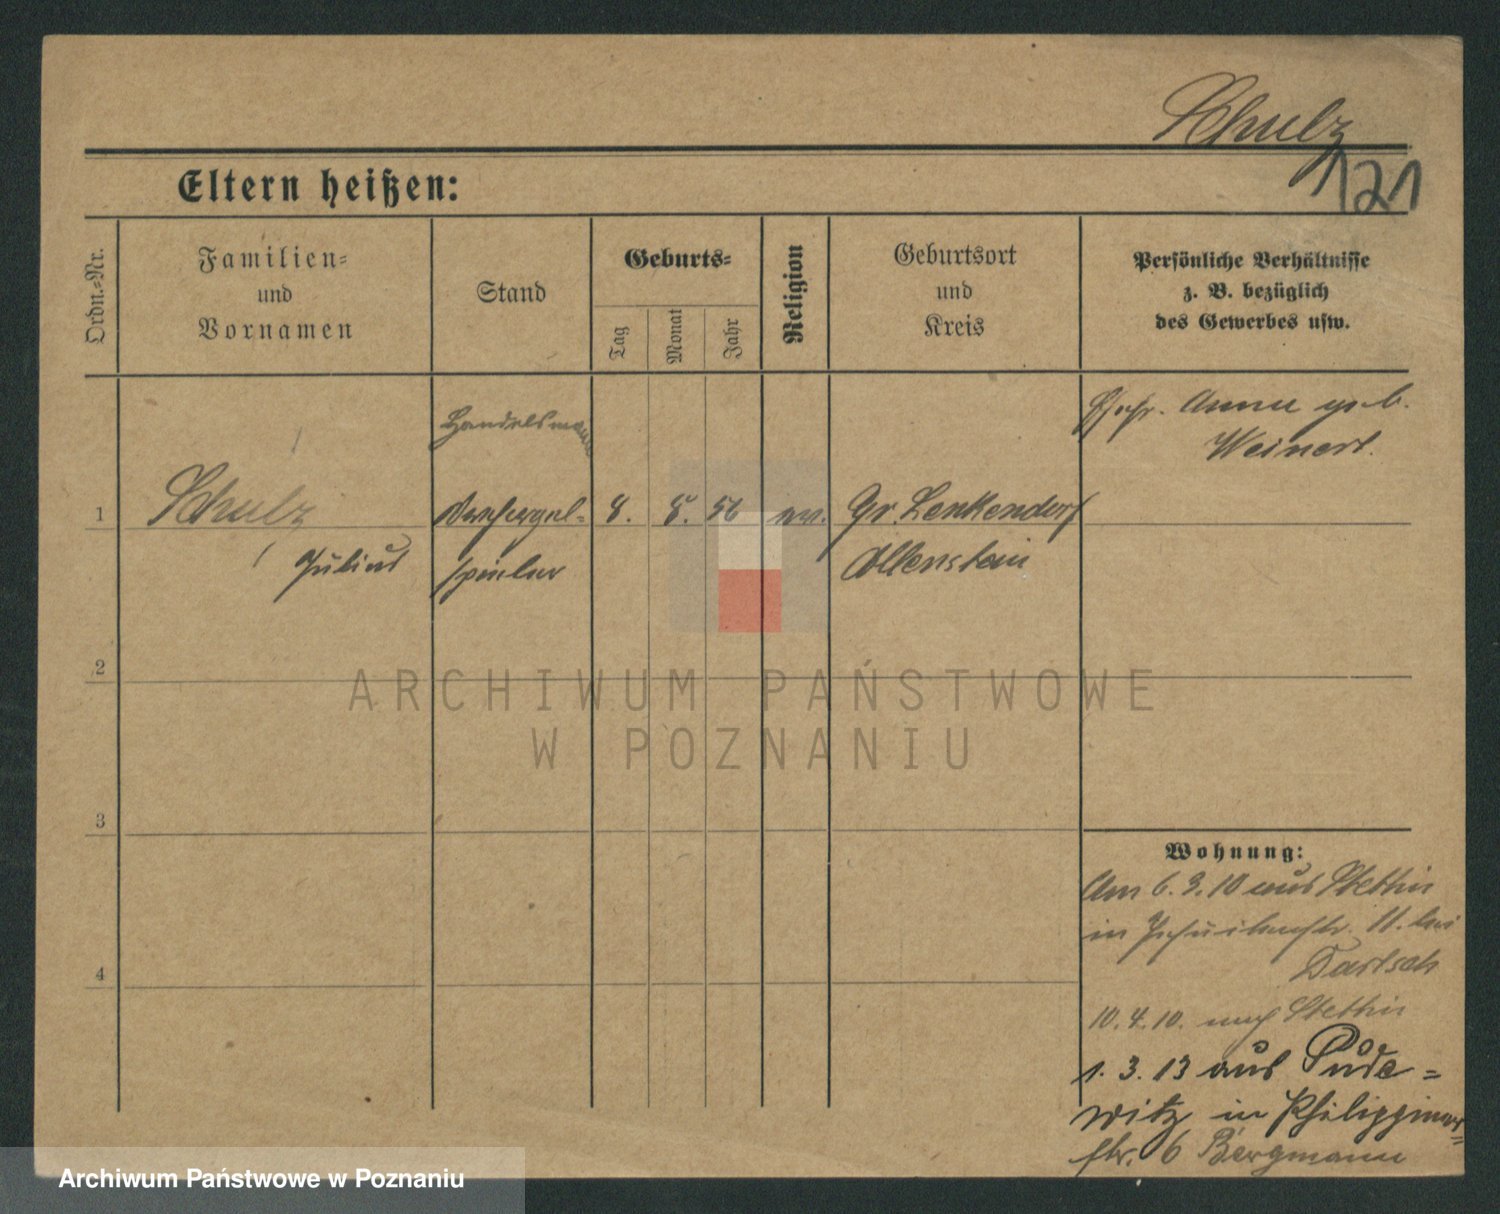 Schulz
121
Eltern heißen:
Ordn.-Nr.
Familien-
und
Vornamen
Stand
Geburts-
Tag
Monat
Jahr
Religion
Geburtsort
und
Kreis
Persönliche Verhältnisse
z. B. bezüglich
des Gewerbes usw.
Handelsmann
Ehefr. Anna geb.
Weinert.
1
Schulz
Drehorgel-
8.
8. 56
ev.
Gr. Lenkendorf
Julius
spieler
Allenstein
2
3
4
Wohnung:
Am 6.3.10 aus Stettin
in Jesuitenstr. 11. bei
Bartsch
10.4.10. nach Stettin
1.3.13 aus Pude-
witz in Philippinen-
str. 6 Bergmann
ARCHIWUM PAŃSTWOWE
W POZNANIU
Archiwum Państwowe w Poznaniu